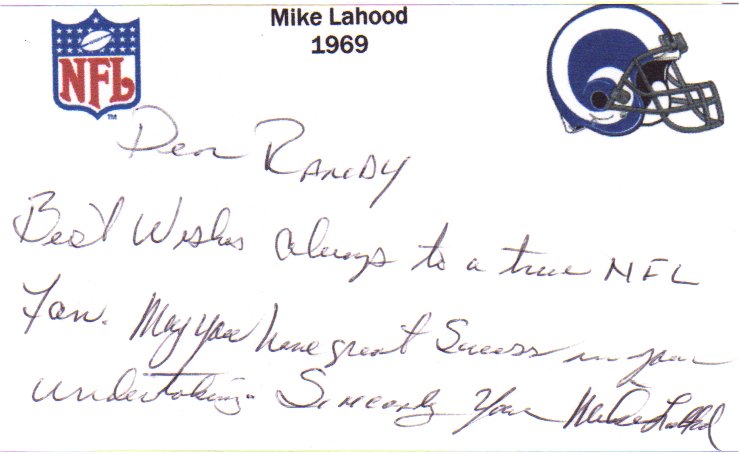 Mike Lahood
1969
NFL
TM
Dear RANDY
Best Wishes always to a true NFL
Fan. May you have great Success in your
undertaking. Sincerely Your Mike Lahood